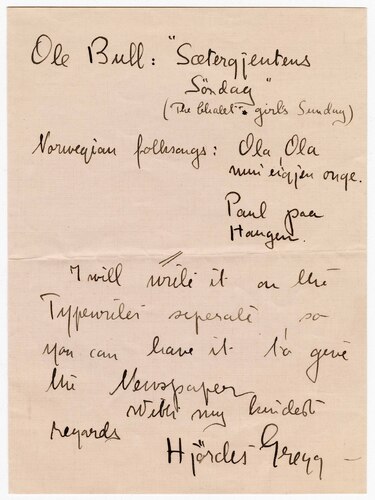 Ole Bull: "Sætergjentens
Söndag"
(The Chalet girls Sunday)
Norwegian folksongs: Ola, Ola
min eigjen onge.
Paul paa
Haugen.
I will write it on the
Typewriter seperate so
you can have it to give
the Newspaper
With my kindest
regards
Hjördis Gregg